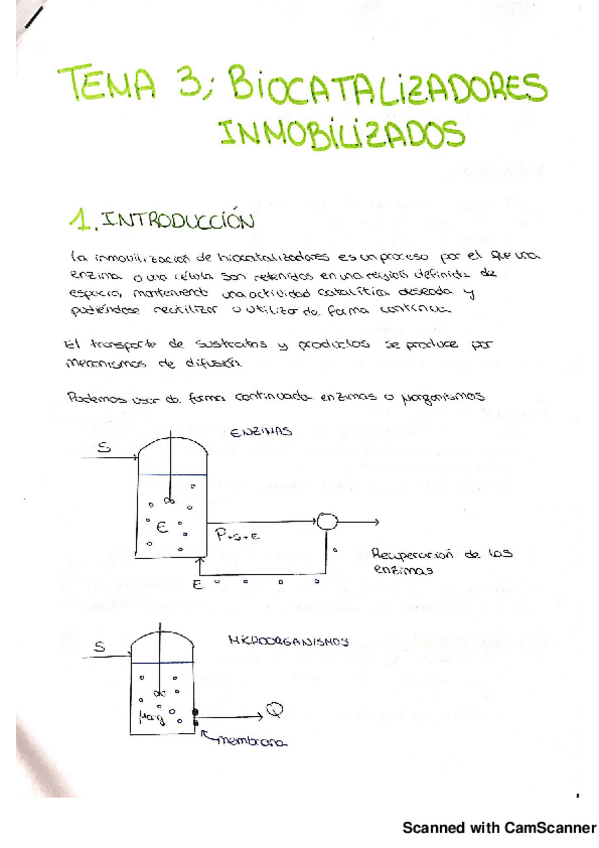 TEMA 3; BIOCATALIZADORES
INMOBILIZADOS
1. INTRODUCCIÓN
La inmovilización de biocatalizadores es un proceso por el que una
enzima o una célula son retenidos en una región definida de
espacio, manteniendo una actividad catalítica deseada y
pudiéndose reutilizar o utilizar de forma continua.
El transporte de sustratos y productos se produce por
mecanismos de difusión.
Podemos usar de forma continuada enzimas o μorganismos
ENZIMAS
S
E
P+S+E
Recuperación de las
enzimas
E
MICROORGANISMOS
S
μog
Q
membrana
Scanned with CamScanner